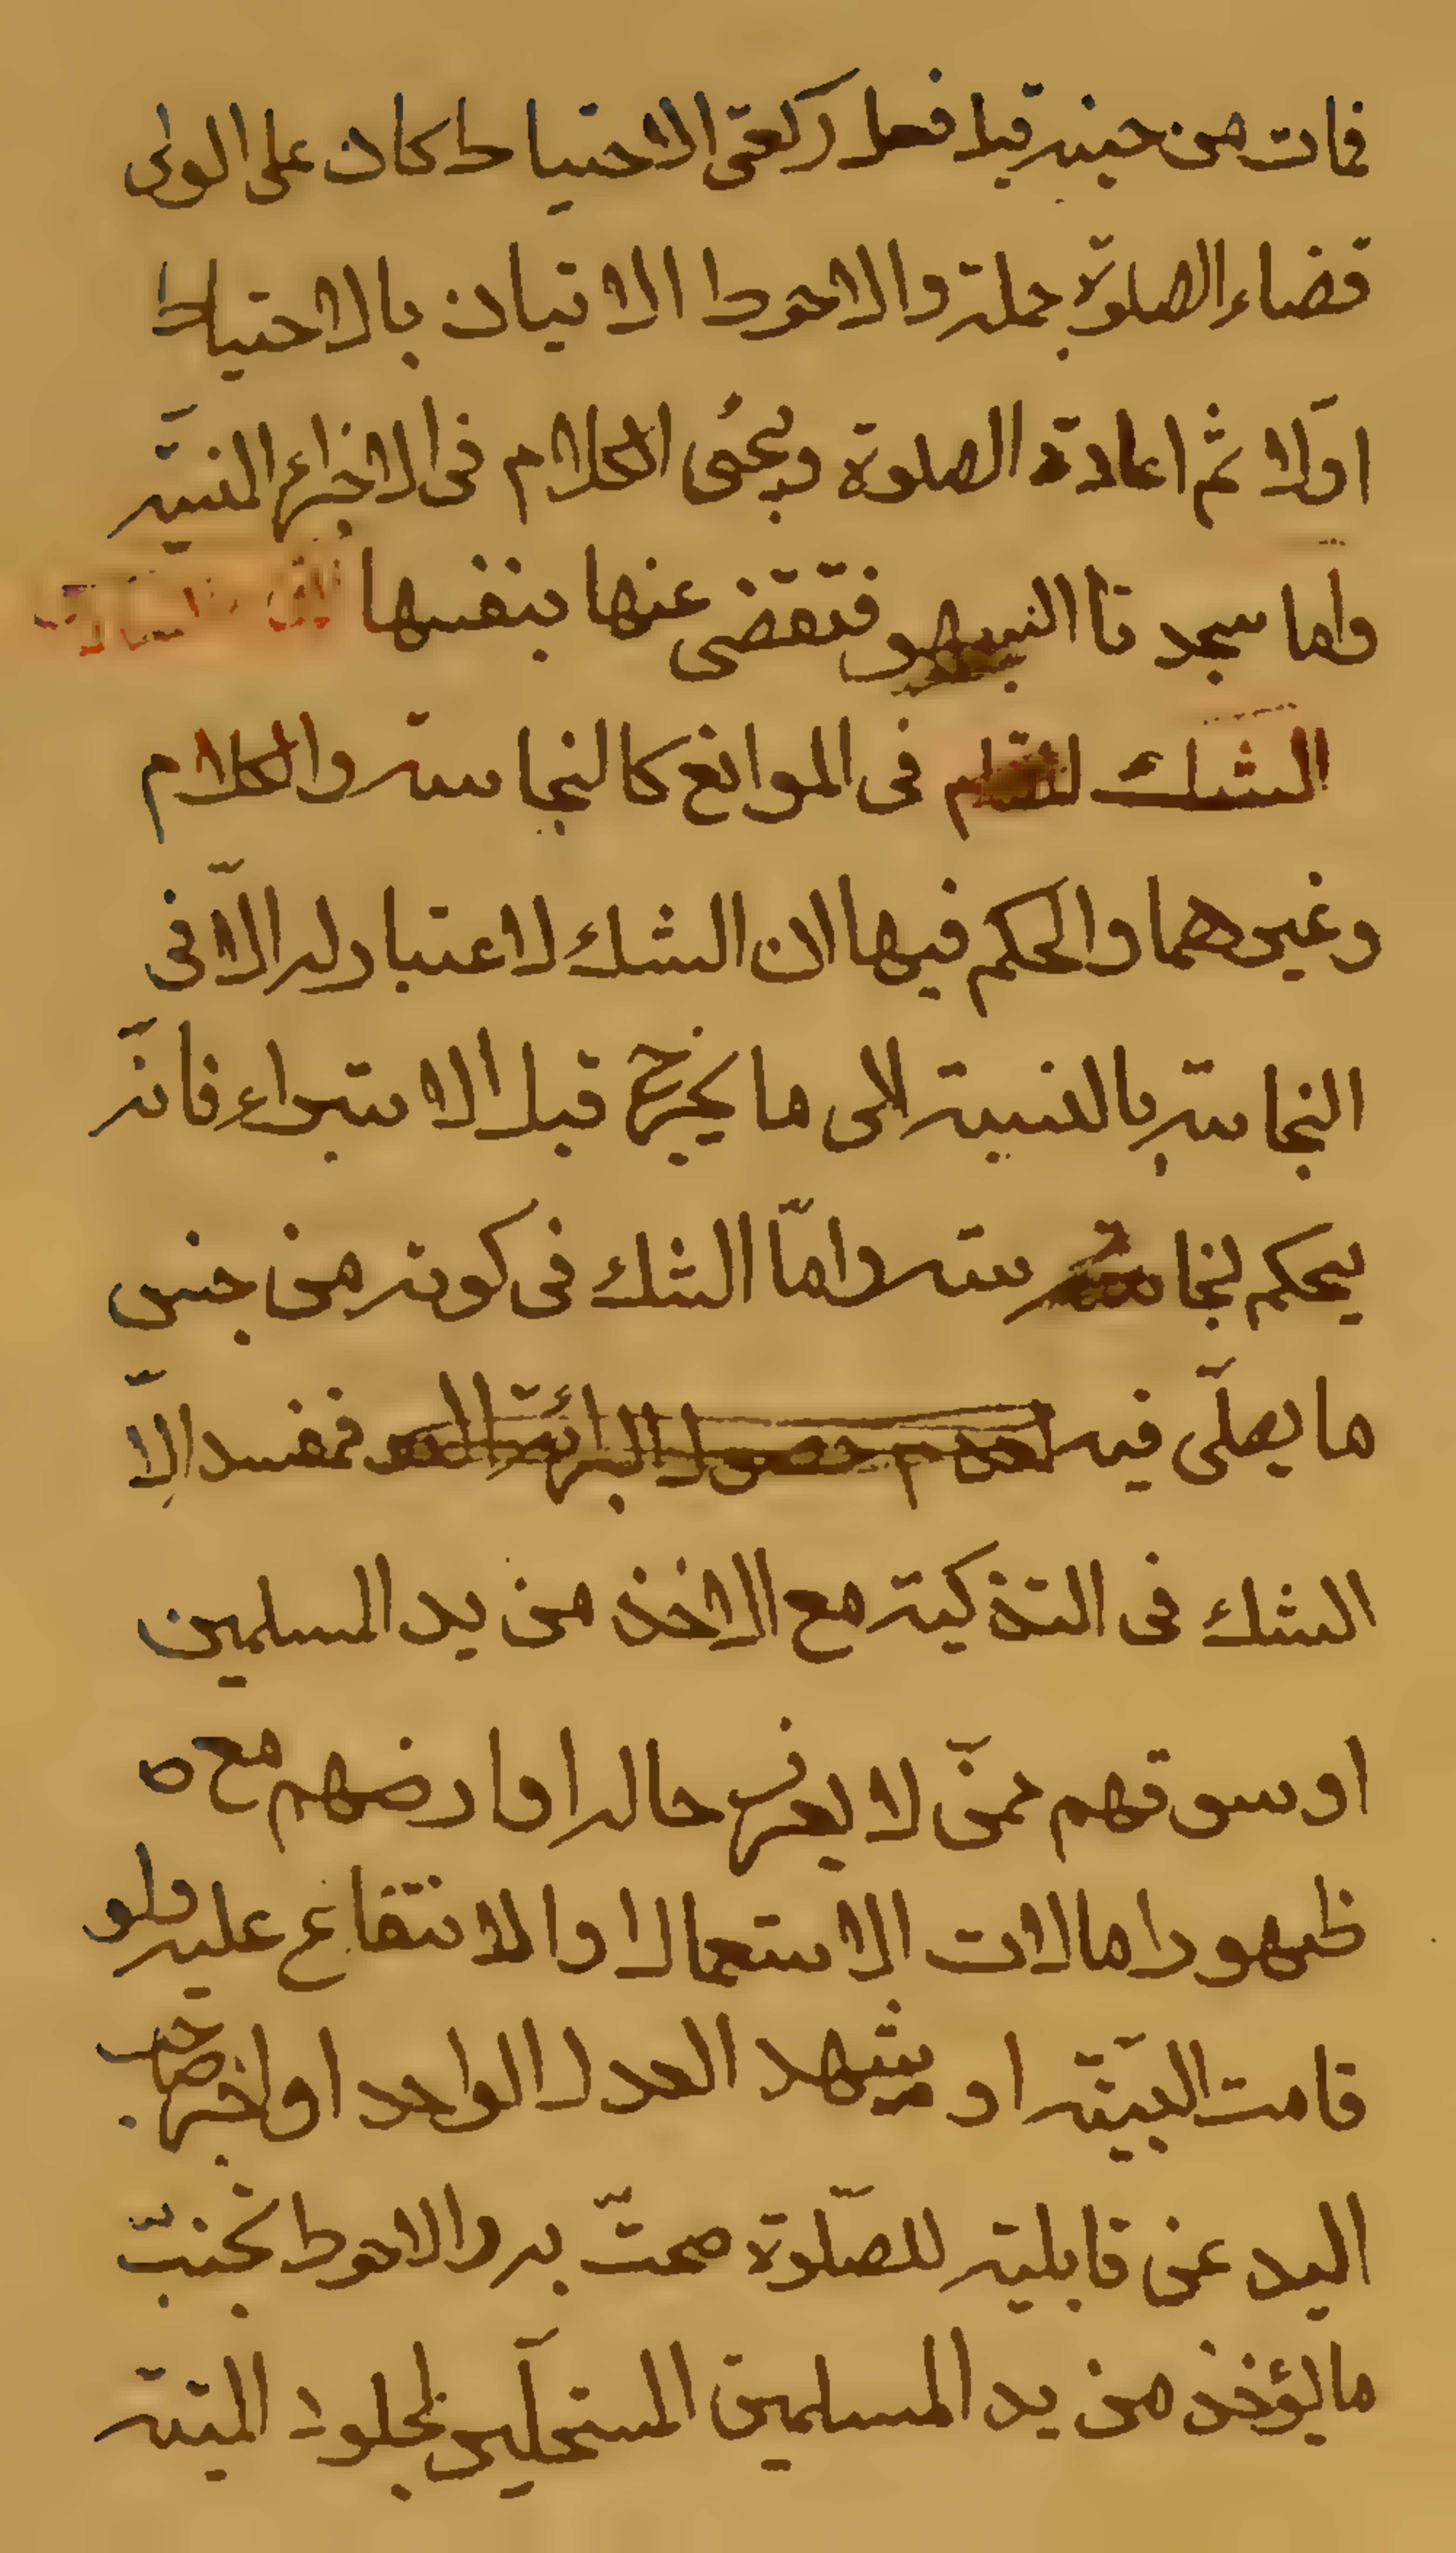 فمات من حينه قبل فعل ركعتى الاحتياط كان على الولى
قضاء الصلوة جملة والاحوط الاتيان بالاحتياط
اوّلا ثم اعادة الصلوة ويجرى الكلام فى الاجزاء المنسيّة
وامّا سجدتا السهو فتقضى عنها بنفسها
الشك فى الموانع كالنجاسة والكلام
وغيرهما والحكم فيها ان الشك لا اعتبار له الّا فى
النجاسة بالنسبة الى ما يخرج قبل الاستبراء فانّه
يحكم بنجاسته وامّا الشك فى كونه من جنس
ما يصلّى فيه لعدم حصول البرائة فمفسد الّا
الشك فى التذكية مع الاخذ من يد المسلمين
او سوقهم ممّن لا يعرف حاله او ارضهم مع
ظهور امارات الاستعمال او الانتفاع عليه ولو
قامت البيّنة او شهد العدل الواحد او اخبر صاحب
اليد عن قابليته للصّلوة صحّت به والاحوط تجنّب
ما يؤخذ من يد المسلمين المستحلّين لجلود الميتة